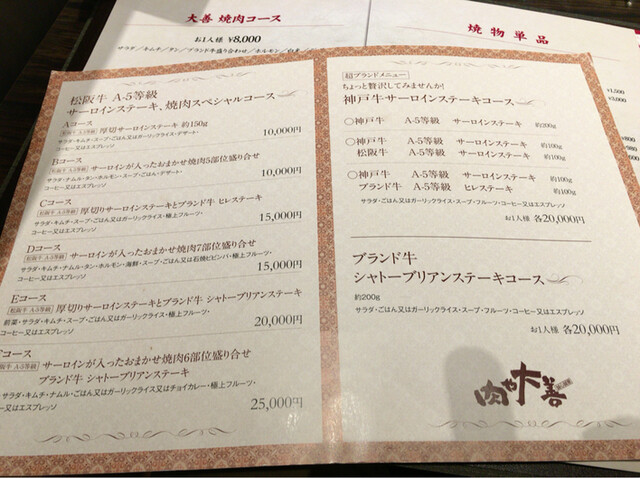 大善 焼肉コース
お1人様 ¥8,000
焼物単品
松阪牛 A-5等級
サーロインステーキ、焼肉スペシャルコース
Aコース
松阪牛 A-5等級 厚切サーロインステーキ 約150g
サラダ・キムチ・スープ・ごはん又はガーリックライス・デザート・
コーヒー又はエスプレッソ
10,000円
Bコース
松阪牛 A-5等級 サーロインが入ったおまかせ焼肉5部位盛り合せ
サラダ・ナムル・タン・ホルモン・スープ・ごはん・デザート・
コーヒー又はエスプレッソ
10,000円
Cコース
松阪牛 A-5等級 厚切りサーロインステーキとブランド牛 ヒレステーキ
サラダ・キムチ・スープ・ごはん又はガーリックライス・極上フルーツ・
コーヒー又はエスプレッソ
15,000円
Dコース
松阪牛 A-5等級 サーロインが入ったおまかせ焼肉7部位盛り合せ
サラダ・キムチ・ナムル・タン・ホルモン・海鮮・スープ・ごはん又は石焼ビビンバ・極上フルーツ・
コーヒー又はエスプレッソ
15,000円
Eコース
松阪牛 A-5等級 厚切りサーロインステーキとブランド牛 シャトーブリアンステーキ
前菜・サラダ・キムチ・スープ・ごはん又はガーリックライス・極上フルーツ・
コーヒー又はエスプレッソ
20,000円
Fコース
A-5等級 サーロインが入ったおまかせ焼肉6部位盛り合せ
ブランド牛 シャトーブリアンステーキ
サラダ・キムチ・ナムル・ごはん又はガーリックライス又はチョイカレー・極上フルーツ・
コーヒー又はエスプレッソ
25,000円
超ブランドメニュー
ちょっと贅沢してみませんか!
神戸牛サーロインステーキコース
○神戸牛 A-5等級 サーロインステーキ 約200g
○神戸牛 A-5等級 サーロインステーキ 約100g
松阪牛 A-5等級 サーロインステーキ 約100g
○神戸牛 A-5等級 サーロインステーキ 約100g
ブランド牛 A-5等級 ヒレステーキ 約100g
サラダ・ごはん又はガーリックライス・スープ・フルーツ・コーヒー又はエスプレッソ
お1人様 各20,000円
ブランド牛
シャトーブリアンステーキコース
約200g
サラダ・ごはん又はガーリックライス・スープ・フルーツ・コーヒー又はエスプレッソ
お1人様 各20,000円
肉や大善